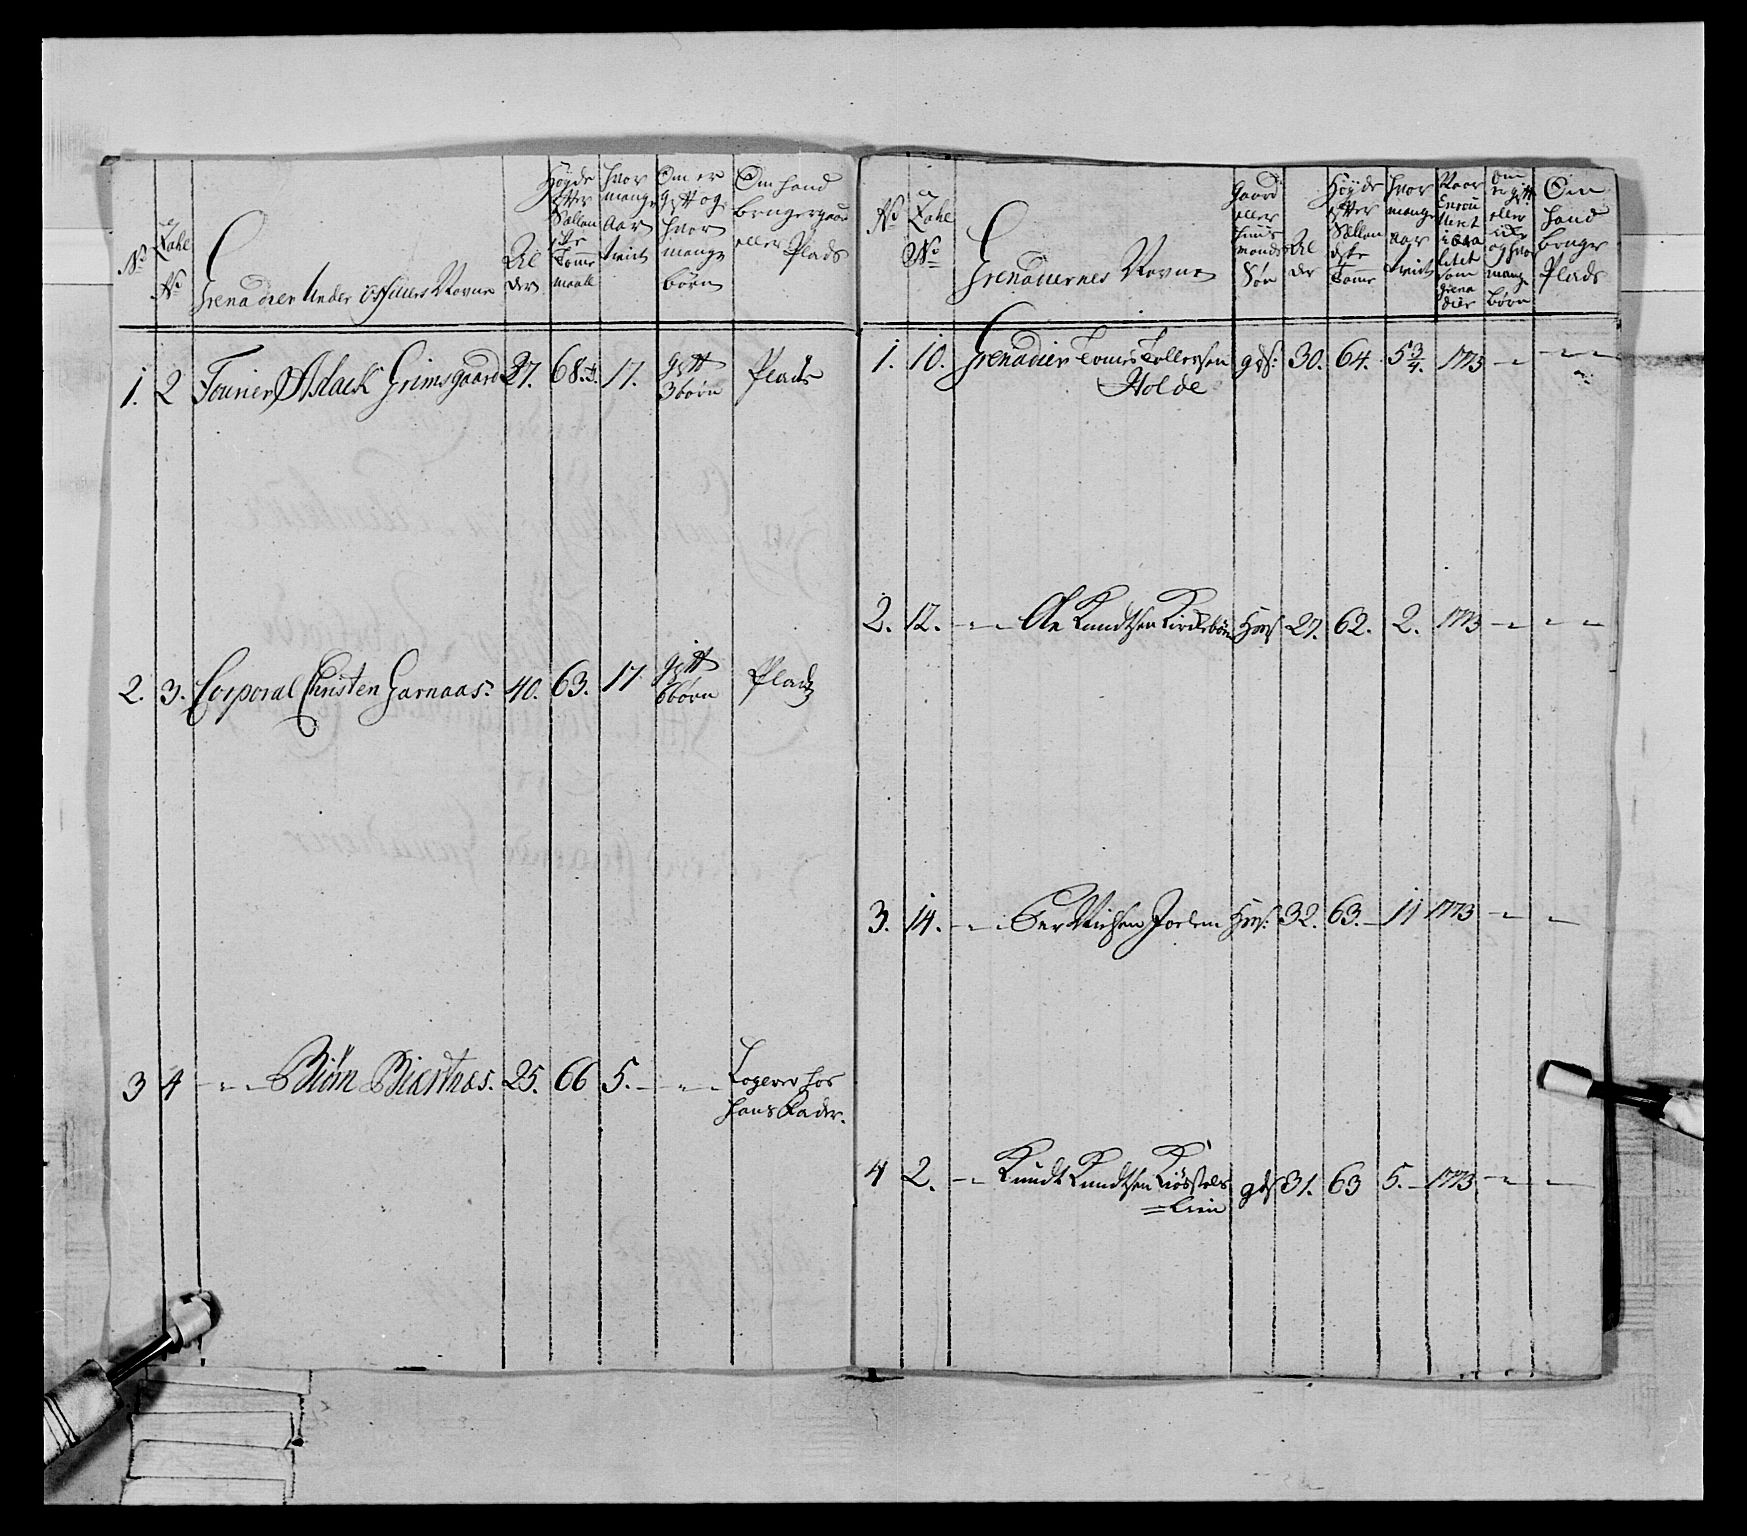 No
Zahl
No
Grenadier Under Officiers Navne
Al
der
Høyde
efter
Sællan
ske
Tomme
maall
hvor
mange
Aar
tient
Om er
gift og
hvor
mange
børn
Om hand
bruger gaard
eller Plads
1. 2 Fourier Aslack Grimsgaard 27. 68. 17. gift
3 børn
Plads
2. 3. Corporal Christen Garnaas. 40. 63. 17 gift
6 børn
Plads
3 4 - " - Biørn Biertnæs. 25. 66 5. - " - Logerer hos
hans Fader.
No
Zahl
No
Grenadiernes Navne
Gaard
eller
Huus
mands
Søn
Al
der
Høyde
efter
Sællan
dske
Tomme
hvor
mange
Aar
tient
Naar
som
Grena
dier
Om
er gift
eller
ide
og hvor
mange
børn
Om
hand
bruger
Plads
1. 10. Grenadier Tollefsen gds: 30. 64. 5 3/4. 1773 - " - - " -
Holde
2. 12. - " - Ole Knudtsen Kirkebøen Hms 27. 62. 2. 1773 - " - - " -
3. 14. - " - Per Nielsen Hms. 32. 63. - 11 1773 - " - -
4 2. - " - Knudt Knudtsen gds 31. 63 5. - 1773 - " - -
= Lien